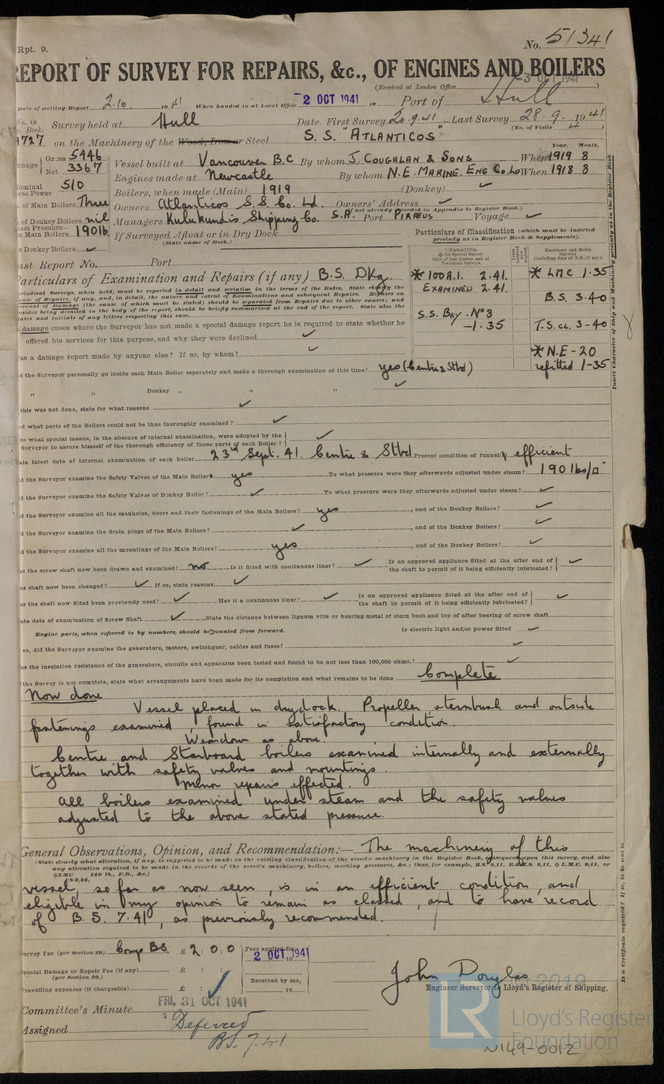 Rpt. 9.
No. 51341
REPORT OF SURVEY FOR REPAIRS, &c., OF ENGINES AND BOILERS
(Received at London Office
3 OCT 1941
Date of writing Report 2.10. 1941 When handed in at Local Office 2 OCT 1941 19 Port of Hull
No. in Book. Survey held at Hull Date, First Survey 20.9.41 Last Survey 28.9. 1941
(No. of Visits 4)
on the Machinery of the Wood, Iron or Steel S.S. "ATLANTICOS"
Gross 5446
Net 3367
Vessel built at Vancouver B.C By whom J. COUGHLAN & SONS When 1919 8
Engines made at Newcastle By whom N.E. MARINE. ENG Co. Ld When 1918 8
Nominal Horse Power 510
Boilers, when made (Main) 1919 (Donkey) ✓
of Main Boilers Three
Owners Atlanticos S.S. Co. Ld. Owners' Address ✓
(if not already recorded in Appendix to Register Book.)
of Donkey Boilers nil
Managers Kulukundis Shipping Co. S.A. Port PIRAEUS Voyage ✓
Main Boilers 190 lb
If Surveyed Afloat or in Dry Dock
(State name of Dock.)
Donkey Boilers ✓
Particulars of Classification (which must be inserted precisely as in Register Book & Supplements).
Last Report No. Port
Particulars of Examination and Repairs (if any) B.S. Dkg.
✠ 100A.1. 2.41.
EXAMINED 2.41.
S.S. Bay. No 3 -1.35
✠ LMC 1-35
B.S. 3.40
T.S. CL. 3-40
✠ N.E-20
refitted 1-35
In damage cases where the Surveyor has not made a special damage report he is required to state whether he
offered his services for this purpose, and why they were declined ✓
Was a damage report made by anyone else? If so, by whom? ✓
Did the Surveyor personally go inside each Main Boiler separately and make a thorough examination at this time? yes (Centre & Stbd)
" " Donkey " " " ✓
If this was not done, state for what reasons ✓
And what parts of the Boilers could not be thus thoroughly examined? ✓
Also what special means, in the absence of internal examination, were adopted by the Surveyor to assure himself of the thorough efficiency of those parts of each Boiler? ✓
State latest date of internal examination of each boiler 23rd Sept. 41. Centre & Stbd Present condition of funnel efficient
Did the Surveyor examine the Safety Valves of the Main Boilers yes To what pressure were they afterwards adjusted under steam? 190 lbs/□"
Did the Surveyor examine the Safety Valves of Donkey Boiler? ✓ To what pressure were they afterwards adjusted under steam? ✓
Did the Surveyor examine all the manholes, doors and their fastenings of the Main Boilers? yes, and of the Donkey Boilers? ✓
Did the Surveyor examine the drain plugs of the Main Boilers? ✓, and of the Donkey Boilers? ✓
Did the Surveyor examine all the mountings of the Main Boilers? yes, and of the Donkey Boilers? ✓
Has the screw shaft now been drawn and examined? no Is it fitted with continuous liner? ✓ Is an approved appliance fitted at the after end of the shaft to permit of it being efficiently lubricated? ✓
Has shaft now been changed? ✓ If so, state reasons ✓
Has the shaft now fitted been previously used? ✓ Has it a continuous liner? ✓ Is an approved appliance fitted at the after end of the shaft to permit of it being efficiently lubricated? ✓
State date of examination of Screw Shaft ✓ State the distance between lignum vitæ or bearing metal of stern bush and top of after bearing of screw shaft
Engine parts, when referred to by numbers, should be counted from forward. Is electric light and/or power fitted ✓
If so, did the Surveyor examine the generators, motors, switchgear, cables and fuses? ✓
Has the insulation resistance of the generators, circuits and apparatus been tested and found to be not less than 100,000 ohms? ✓
If the Survey is not complete, state what arrangements have been made for its completion and what remains to be done Complete
Now done
Vessel placed in drydock. Propeller, sternbush and outside
fastenings examined, found in satisfactory condition.
Weardown as above.
Centre and Starboard boilers examined internally and externally
together with safety valves and mountings.
Minor repairs effected.
All boilers examined under steam and the safety valves
adjusted to the above stated pressure.
General Observations, Opinion, and Recommendation:— The machinery of this
(State clearly what alteration, if any, is suggested to be made in the existing classification of the vessel's machinery in the Register Book, consequent upon this survey, and also
vessel, so far as now seen, is in an efficient condition, and
eligible in my opinion to remain as classed, and to have record
of B.S. 7.41, as previously recommended.
Survey Fee (per Section 29) Comp BS. £ 2 : 0 : 0 Fees applied for 2 OCT 1941
Special Damage or Repair Fee (if any) (per Section 29.) £ : :
Received by me,
Travelling expenses (if chargeable) £ : : 19
John Douglas
Engineer Surveyor to Lloyd's Register of Shipping.
Committee's Minute FRI. 31 OCT 1941
Assigned Deferred
BS. 7.41
Insert Character of Ship and Machinery precisely as in the Register Book
Is a Certificate required? If so, to be sent to
© 2019
LR
Lloyd's Register
Foundation
W149-0012